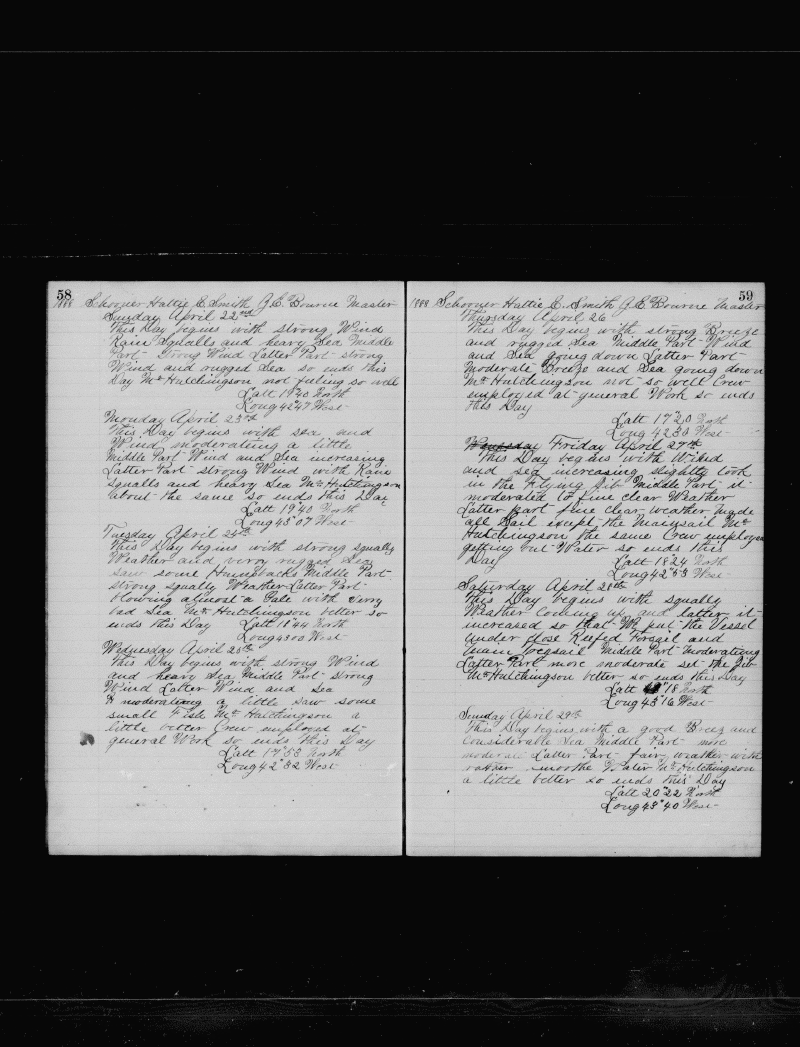 58
1888 Schooner Hattie E. Smith J.E. Bourne Master
Sunday April 22nd
This Day begins with strong Wind
Rain Squalls and heavy Sea Middle
Part strong Wind Latter Part strong
Wind and rugged Sea so ends this
Day Mr Hutchingson not feeling so well
Latt 19°40 North
Long 42°47 West
Monday April 23rd
This Day begins with sea and
Wind moderating a little
Middle Part Wind and Sea increasing
Latter Part strong Wind with Rain
squalls and heavy Sea Mr Hutchingson
about the same so ends this Day
Latt 19°40 North
Long 43°07 West
Tuesday April 24th
This Day begins with strong squally
Weather and very rugged Sea
saw some Humpbacks Middle Part
strong squally Weather Latter Part
blowing almost a Gale with verry
bad Sea Mr Hutchingson better so
ends this Day Latt 18°44 North
Long 43°00 West
Wednesday April 25th
This Day begins with strong Wind
and heavy Sea Middle Part strong
Wind Latter Wind and Sea
& moderating a little saw some
small Fish Mr Hutchingson a
little better Crew employed at
general Work so ends this Day
Latt 17°53 North
Long 42°32 West
59
1888 Schooner Hattie E. Smith J E Bourne Master
Thursday April 26
This Day begins with strong Breeze
and rugged Sea Middle Part Wind
and Sea going down Latter Part
Moderate Breeze and Sea going down
Mr Hutchingson not so well Crew
employed at general Work so ends
this Day
Latt 17°20 North
Long 42°30 West
Friday April 27th
This Day begins with Wind
and sea increasing slightly took
in the Flying Jib Middle Part it
moderated to fine clear Weather
Latter part fine clear weather made
all Sail except the Mainsail Mr
Hutchingson the same Crew employed
getting out Water so ends this
Day Latt 18°24 North
Long 42°53 West
Saturday April 28th
This Day begins with squally
Weather Coming up and latter it
increased so that We put the Vessel
under close Reefed Forsail and
Middle Part Moderating
Latter Part more moderate set the Jib
Mr Hutchingson better so ends this Day
Latt 18 North
Long 43°16 West
Sunday April 29th
This Day begins with a good Breez and
Considerable Sea Middle Part more
moderate Latter Part fair weather with
rather smoothe Water Mr Hutchingson
a little better so ends this Day
Latt 20°22 North
Long 43°40 West